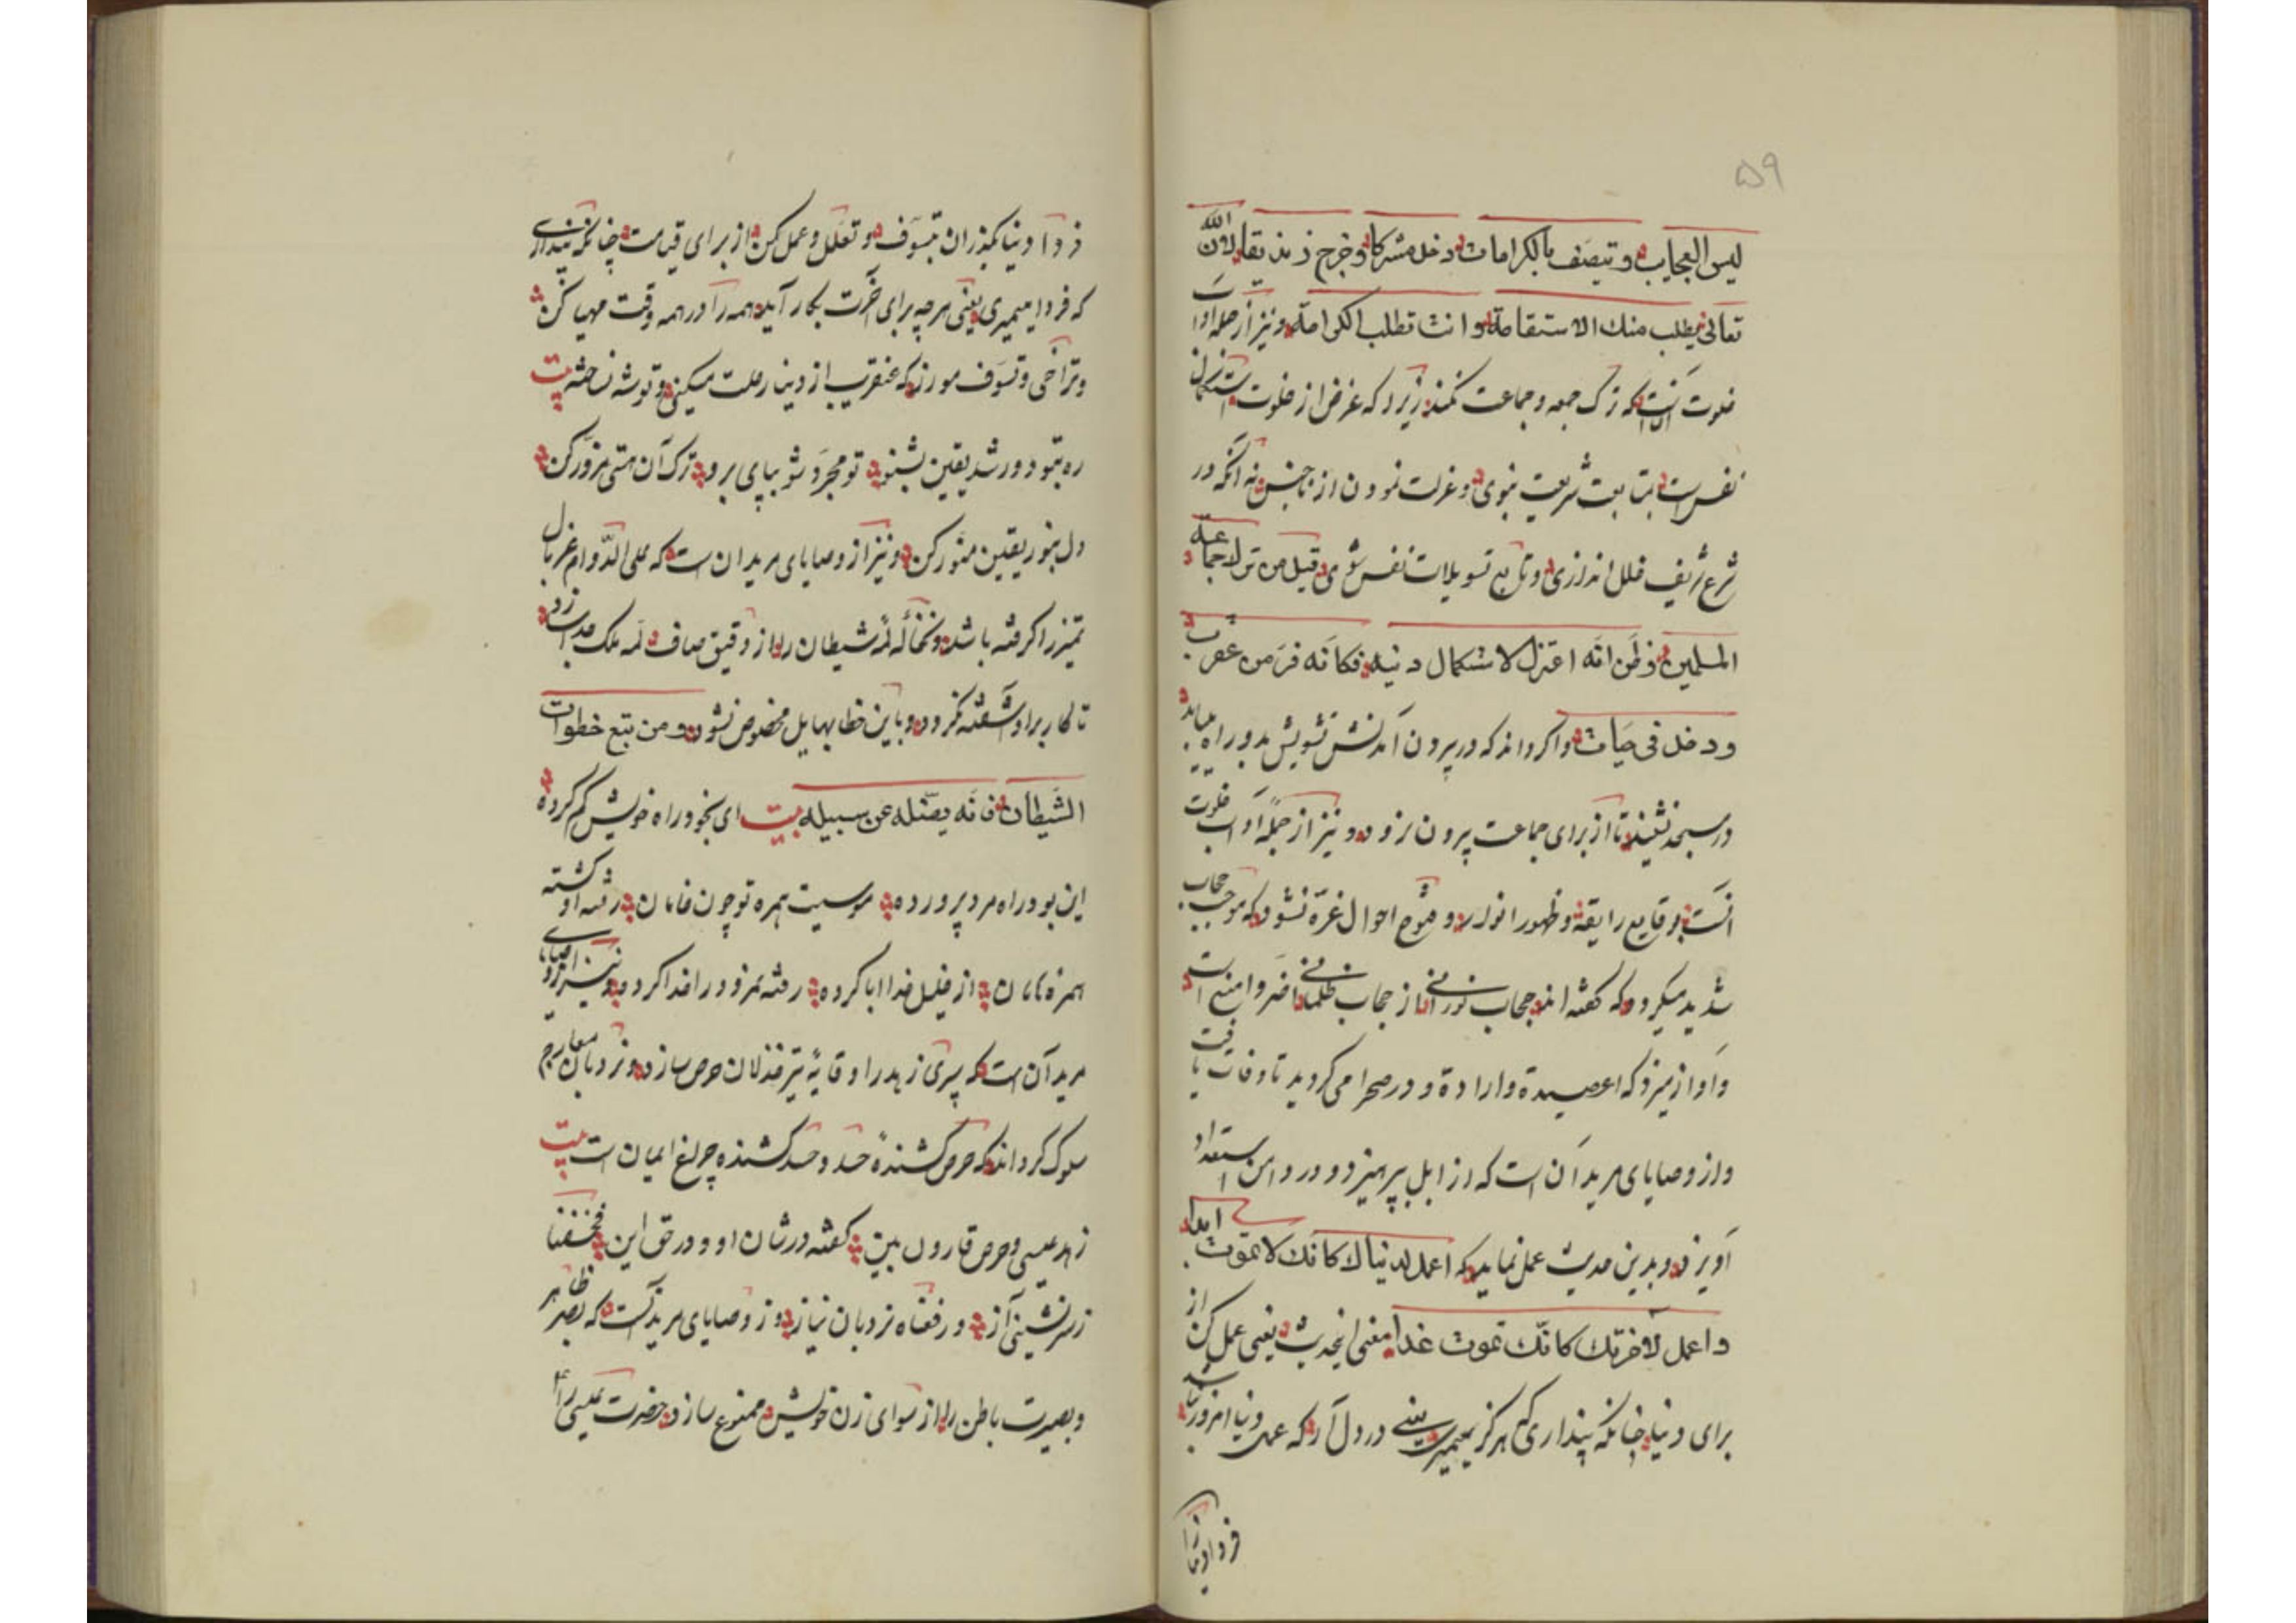 ۵۹
لیس العجایب و تیصف بالکرامات دخل مشرکا و خرج زندیقا لان الله
تعالی یطلب منک الاستقامة و انت تطلب الکرامة و نیز از جمله آداب
خلوت آنست که ترک جمعه و جماعت نکند زیرا که غرض از خلوت استکمال
نفس است بمتابعت شریعت نبوی و عزلت نمودن از ناجنس نه آنکه در
شرع شریف خلل اندازی و تابع تسویلات نفس شوی قیل من ترک جماعة
المسلمین و ظن انه اعتزل لاستکمال دنیه فکانه فر من عقرب
و دخل فی حیات و اگر داند که در بیرون آمدنش تشویش بدو راه میابد
در مسجد نشیند تا از برای جماعت بیرون نرود و نیز از جمله آداب خلوت
آنست بوقایع رایقه و ظهور انوار و فتوح احوال غره نشود که موجب حجاب
شدید میگردد که گفته اند حجاب نورانی از حجاب ظلمانی اضر و امنع است
و آواز میزد که اعصیدة و ارادة و در صحرا می گردید تا وفات یافت
و از وصایای مرید آن است که از ابل بپرهیزد و در دامن استعداد
آویزد و بدین حدیث عمل نماید که اعمل لدنیاک کانک لا تموت ابدا
و اعمل لآخرتک کانک تموت غدا معنی اینحدیث یعنی عمل کن از
برای دنیا چنانکه پنداری که هرگز نمیمیری یعنی در دل آر که عمل دنیا امروز نباشد
فردا و دنیا را
فردا و دنیا بگذران بتسوف و تعلل و عمل کن از برای قیامت چنانکه پنداری
که فردا میمیری یعنی هرچه برای آخرت بکار آید همه را در همه وقت مهیا کن
و تراخی و تسوف مورز که عنقریب از دنیا رحلت میکنی و توشه نساخته بیت
ره بتو دور شد یقین بشنو تو مجرد شو بپای برو ترک آن هستی مزور کن
دل بنور یقین منور کن و نیز از وصایای مریدان است که علی الدوام غربال
تمیز را گرفته باشد و نخاله لمه شیطان را از دقیق صاف لمه ملک جدا سازد
تا کار بر او شفته نگردد و باین خطا بهایل مخصوص نشود و من یتبع خطوات
الشیطان فانه یضله عن سبیله بیت ای بخود راه خویش گم کرده
این بود راه مرد پرورده موسیت همره تو چون خامان رفته او گشته
همره هامان از خلیل خدا ابا کرده رفته نمرود را خدا کرده و نیز از وصایای
مرید آن است که سپری زهد را وقایهٔ تیر خذلان حرص سازد و نردبان معارج
سلوک گرداند که حرص کشندهٔ حسد و حسد کشنده چراغ ایمان است بیت
زهد عیسی و حرص قارون بین گفته در شان او و در حق این فخسفنا
ز سرنشینی آز و رفعناه نردبان نیاز و از وصایای مرید آنست که بصر ظاهر
و بصیرت باطن را از سوای زن خویش ممنوع سازد حضرت عیسی را